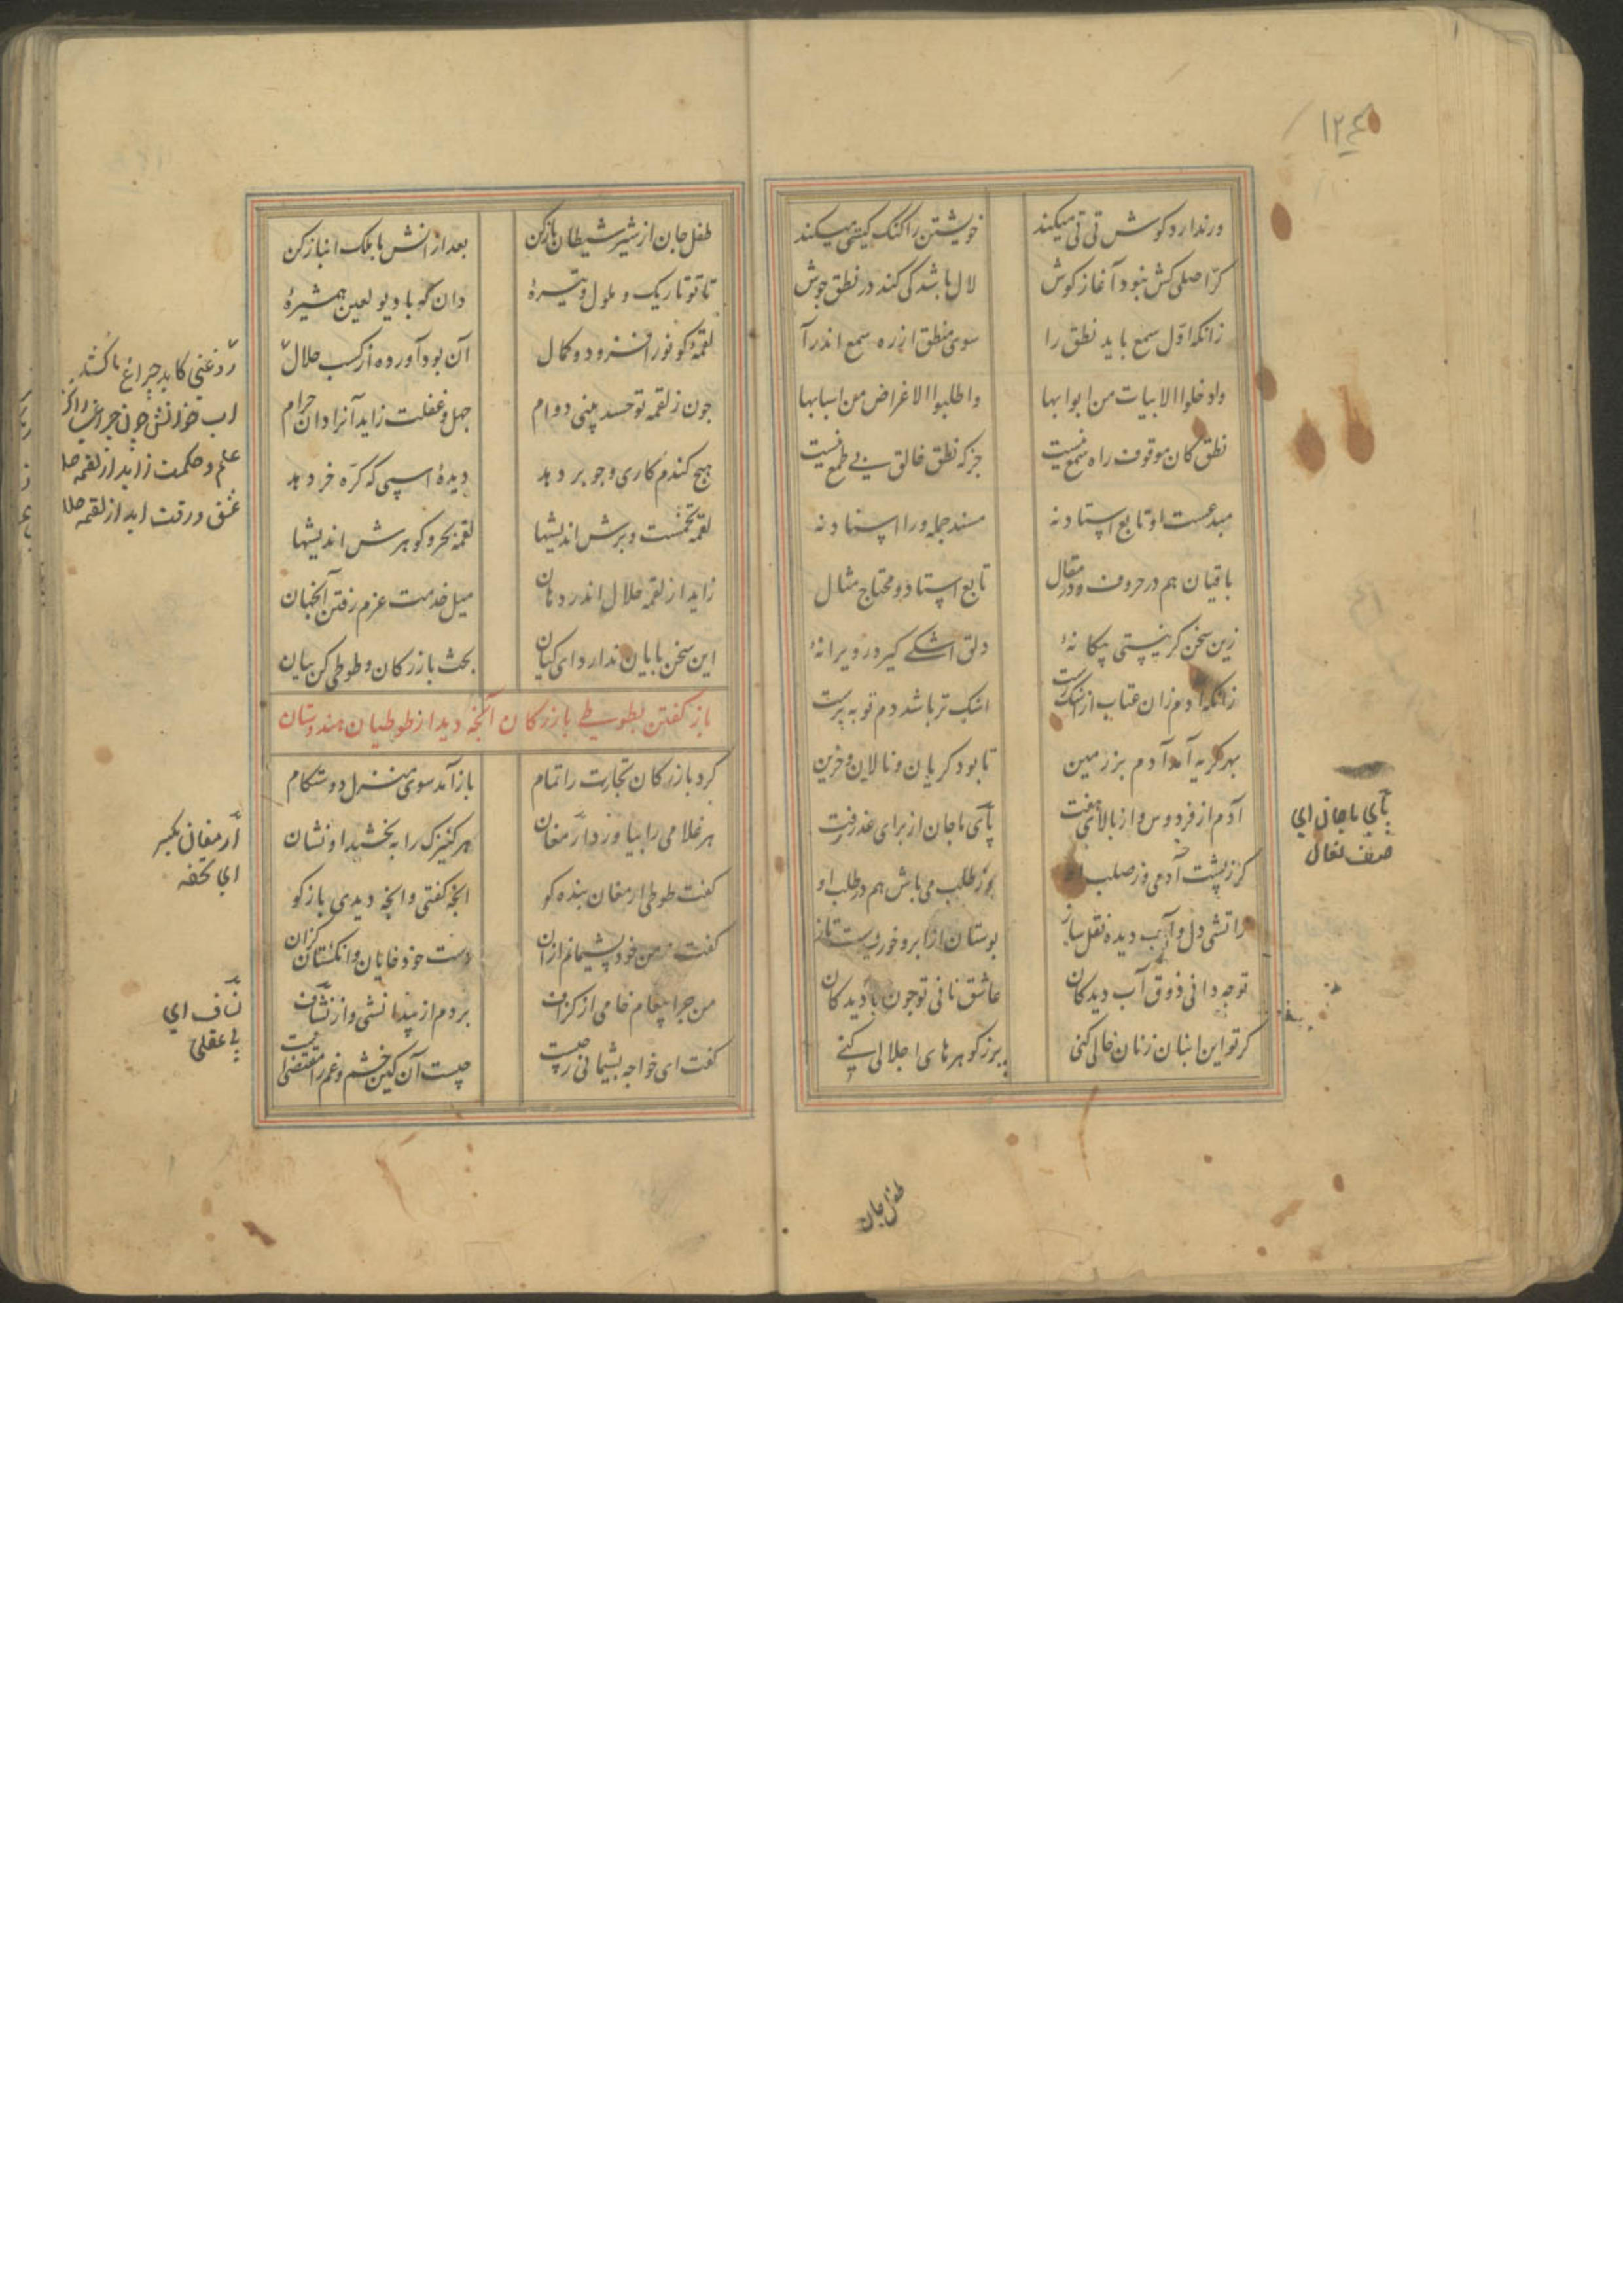 ١٢٤
ورندارد کوش تی تی میکند خویشتن را کنک کیتی میکند
کرّ اصلی کش نبود آغاز کوش لال باشد کی کند در نطق جوش
زانکه اوّل سمع باید نطق را سوی منطق از ره سمع اندر آ
وادخلوا الابیات من ابوابها واطلبوا الاغراض من اسبابها
نطق کان موقوف راه سمع نیست جز که نطق خالق بی طمع نیست
مبدعست او تابع استاد نه مسند جمله ورا اسناد نه
باقیان هم در حروف و در مقال تابع استاد و محتاج مثال
زین سخن کر نیستی بیکانهٔ دلق اشکی کیر در ویرانهٔ
زانکه آدم زان عتاب از اشک رست اشک تر باشد دم توبه پرست
بهر کریه آمد آدم بر زمین تا بود کریان و نالان و حزین
آدم از فردوس و از بالای هفت پای ماچان از برای عذر رفت
کر ز پشت آدمی وز صلب او در طلب می باش هم در طلب او
ز آتش دل و آب دیده نقل ساز بوستان از ابر و خورشیدست تاز
تو چه دانی ذوق آب دیدکان عاشق نانی تو چون نادیدکان
کر تو این انبان ز نان خالی کنی پر ز کوهرهای اجلالی کنی
پای ماچان ای
صف نعال
طفل جان
طفل جان از شیر شیطان باز کن بعد از آنش با ملک انباز کن
تا تو تاریک و ملول و تیرهٔ دان که با دیو لعین همشیرهٔ
لقمهٔ کو نور افزود و کمال آن بود آورده از کسب حلال
چون ز لقمه تو حسد بینی دوام جهل و غفلت زاید آنرا دان حرام
هیچ کندم کاری و جو بر دهد دیدهٔ اسپی که کرّه خر دهد
لقمه تخمست و برش اندیشها لقمه بحر و کوهرش اندیشها
زاید از لقمه حلال اندر دهان میل خدمت عزم رفتن آنجهان
این سخن پایان ندارد ای کیان بحث بازرکان و طوطی کن بیان
باز کفتن بطوطی بازرکان آنچه دید از طوطیان هندوستان
کرد بازرکان تجارت را تمام باز آمد سوی منزل دوستکام
هر غلامی را بیاورد ارمغان هر کنیزک را ببخشید او نشان
کفت طوطی ارمغان بنده کو آنچه کفتی وانچه دیدی باز کو
کفت نه من خود پشیمانم از آن دست خود خایان و انکشتان کزان
من چرا پیغام خامی از کزاف بردم از بیدانشی و از نشاف
کفت ای خواجه پشیمانی ز چیست چیست آن کین خشم و غم را مقتضیست
روغنی کاید چراغ ما کُشد
آب خوانش چون چراغی را کشد
علم و حکمت زاید از لقمه حلا
عشق و رقت آید از لقمه حلا
ارمغانی بکسر
ای تحفه
نشاف ای
بی عقلی